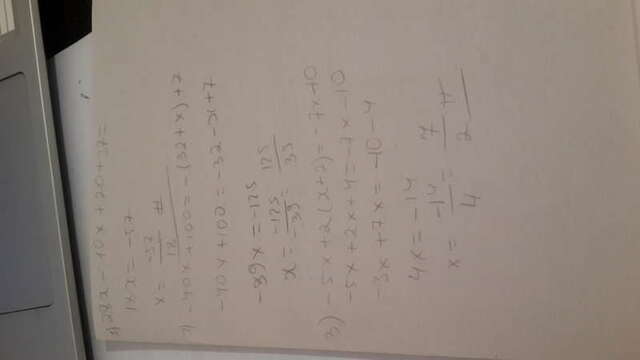 28x - 10x + 20 + 37 =
18x = -57
x = -57/18
2) -40x + 100 = -(32 + x) + 7
-40x + 100 = -32 - x + 7
-39x = -125
x = -125/-39 = 125/39
3) -5x + 2(x + 2) = -7x + 10
-5x + 2x + 4 = -7x - 10
-3x + 7x = -10 - 4
4x = -14
x = -14/4 = 7/2